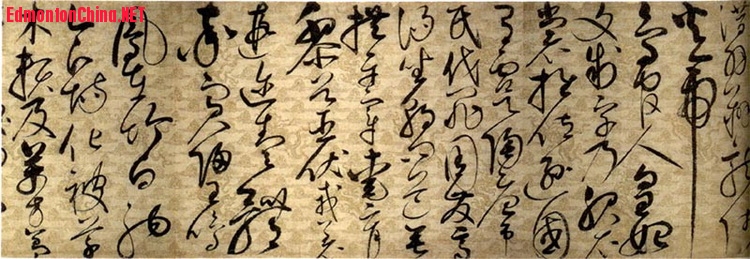 EdmontonChina.NET
潛羽翔龍師
火帝
鳥官人皇始
制文字乃服衣
裳推位遜國
有虞陶唐弔
民伐罪周發商
湯坐朝問道垂
拱平章愛育
黎首臣伏戎羌
遐邇壹體
率賓歸王鳴
鳳在竹白駒
食場化被草
木賴及萬方蓋